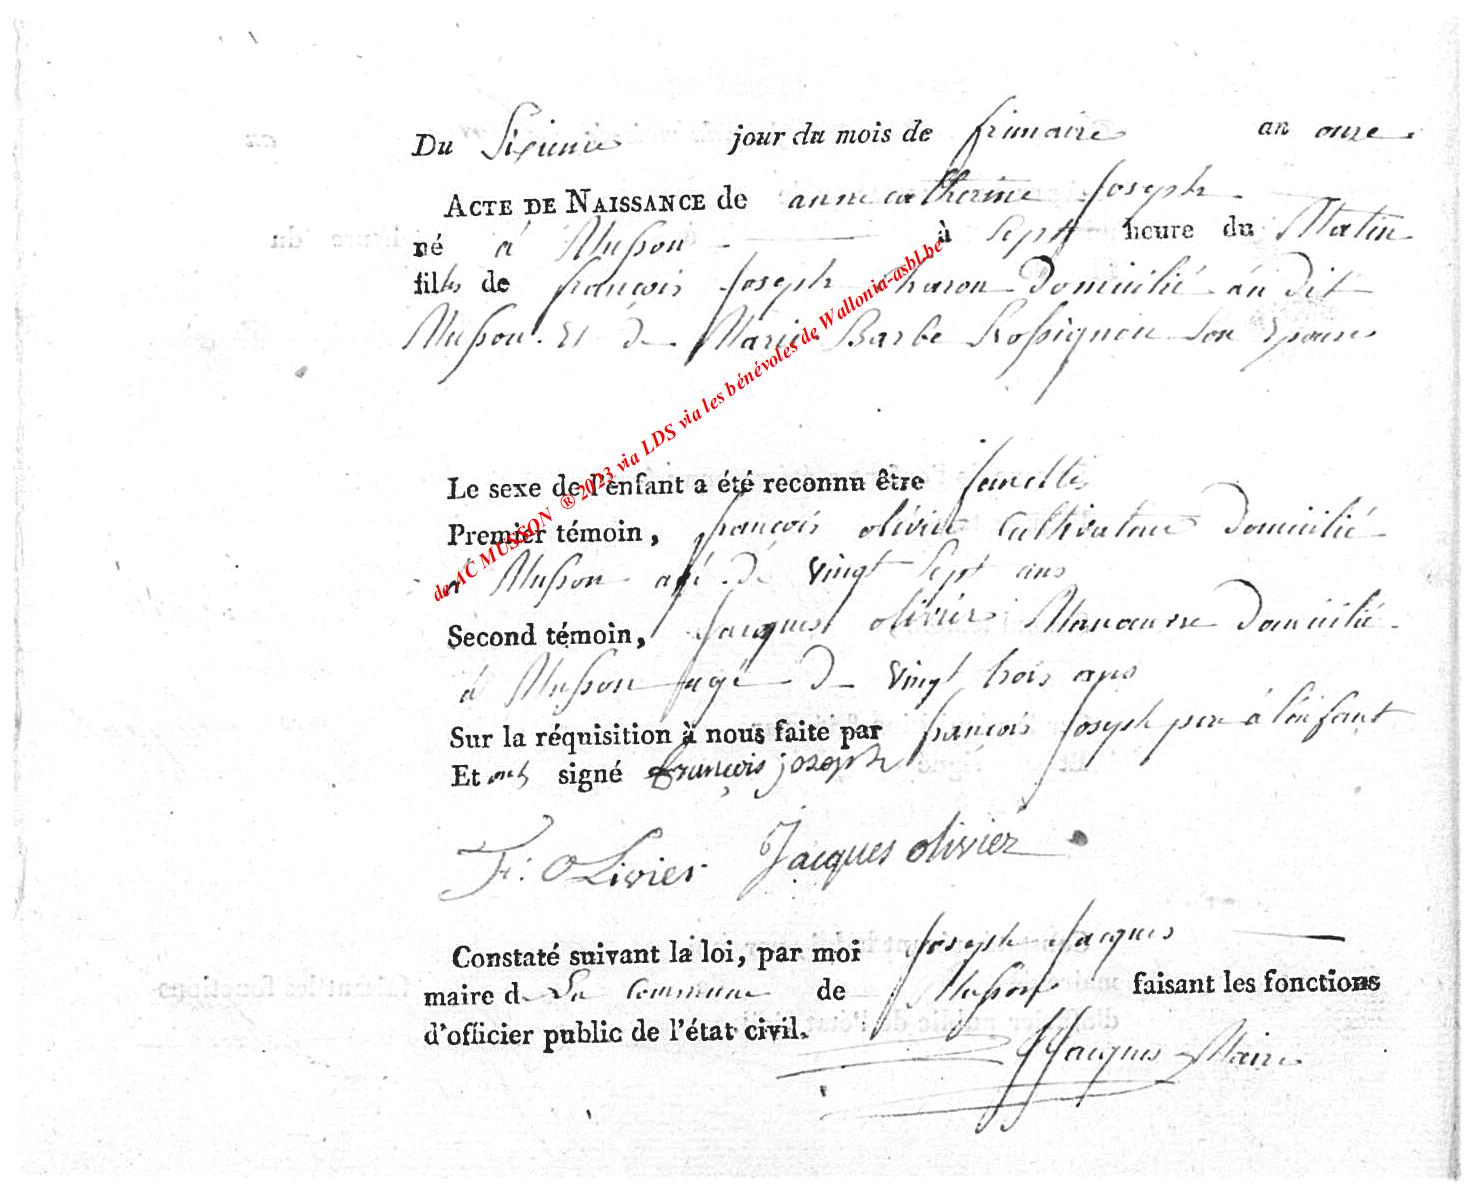 Du Sixieme jour du mois de frimaire an onze
ACTE DE NAISSANCE de anne catherine Joseph
né à Musson à Sept heure du Matin
filles de françois Joseph Charon Domicilié au dit
Musson. Et de Marie Barbe Rossignon Son Epouse
Le sexe de l'enfant a été reconnu être femelle
Premier témoin, françois olivier Cultivateur Domicilié
à Musson agé de vingt Sept ans
Second témoin, Jacques olivier Manœuvre Domicilié
à Musson agé de vingt trois ans
Sur la réquisition à nous faite par françois Joseph pere à l'enfant
Et ont signé françois joseph
F: OLivier Jacques olivier
Constaté suivant la loi, par moi Joseph Jacques
maire de La Commune de Musson faisant les fonctions
d'officier public de l'état civil.
JJacques Maire
de AC MUSSON ® 2023 via LDS via les bénévoles de Wallonia-asbl.be